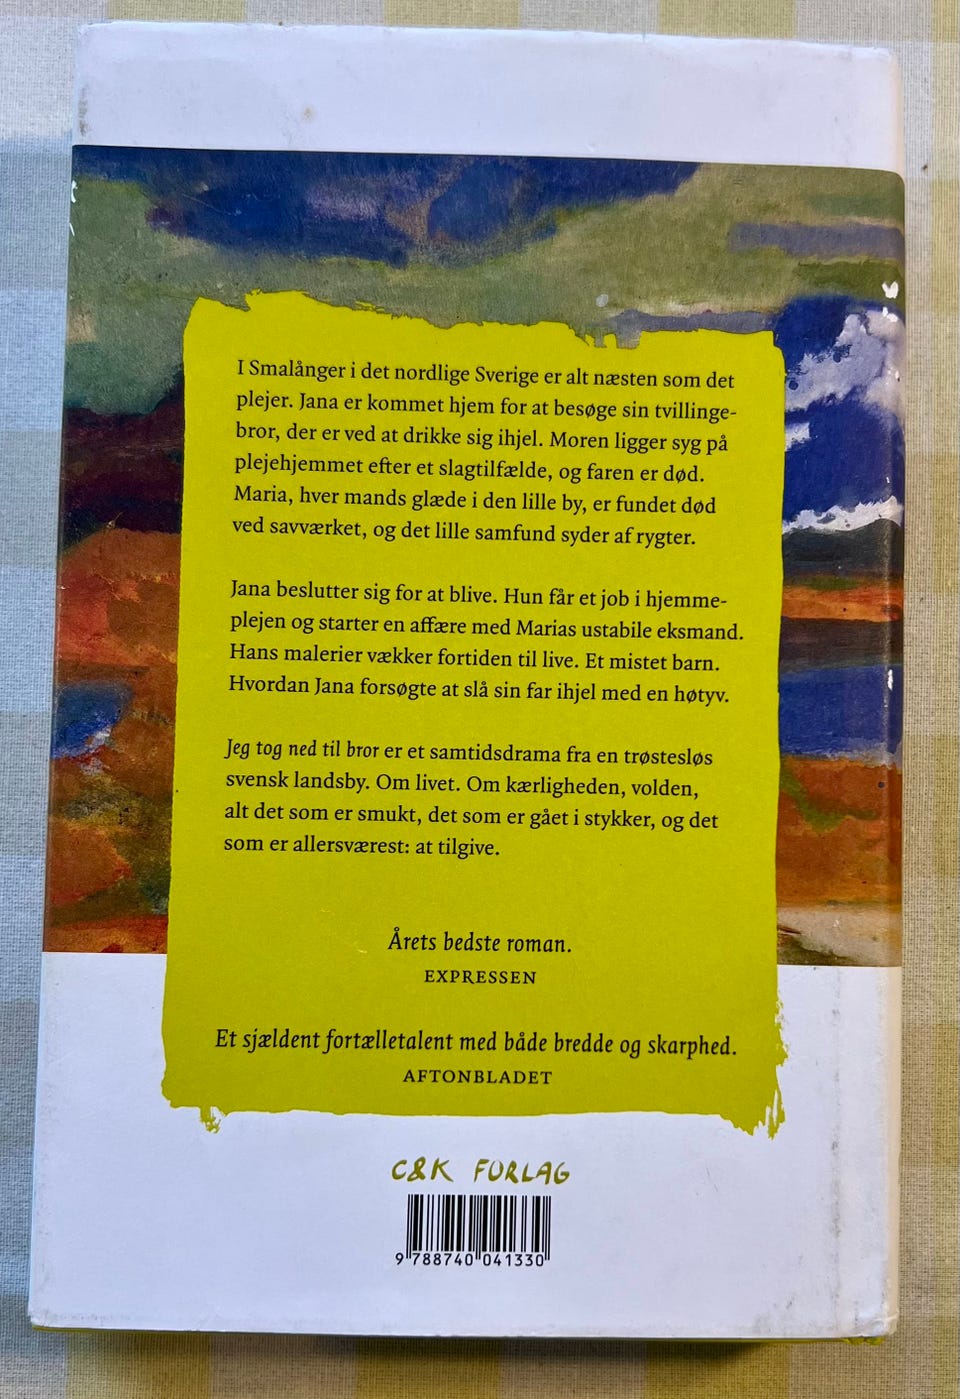 I Smalånger i det nordlige Sverige er alt næsten som det
plejer. Jana er kommet hjem for at besøge sin tvillinge-
bror, der er ved at drikke sig ihjel. Moren ligger syg på
plejehjemmet efter et slagtilfælde, og faren er død.
Maria, hver mands glæde i den lille by, er fundet død
ved savværket, og det lille samfund syder af rygter.
Jana beslutter sig for at blive. Hun får et job i hjemme-
plejen og starter en affære med Marias ustabile eksmand.
Hans malerier vækker fortiden til live. Et mistet barn.
Hvordan Jana forsøgte at slå sin far ihjel med en høtyv.
Jeg tog ned til bror er et samtidsdrama fra en trøstesløs
svensk landsby. Om livet. Om kærligheden, volden,
alt det som er smukt, det som er gået i stykker, og det
som er allersværest: at tilgive.
Årets bedste roman.
EXPRESSEN
Et sjældent fortælletalent med både bredde og skarphed.
AFTONBLADET
C&K FORLAG
9 788740 041330